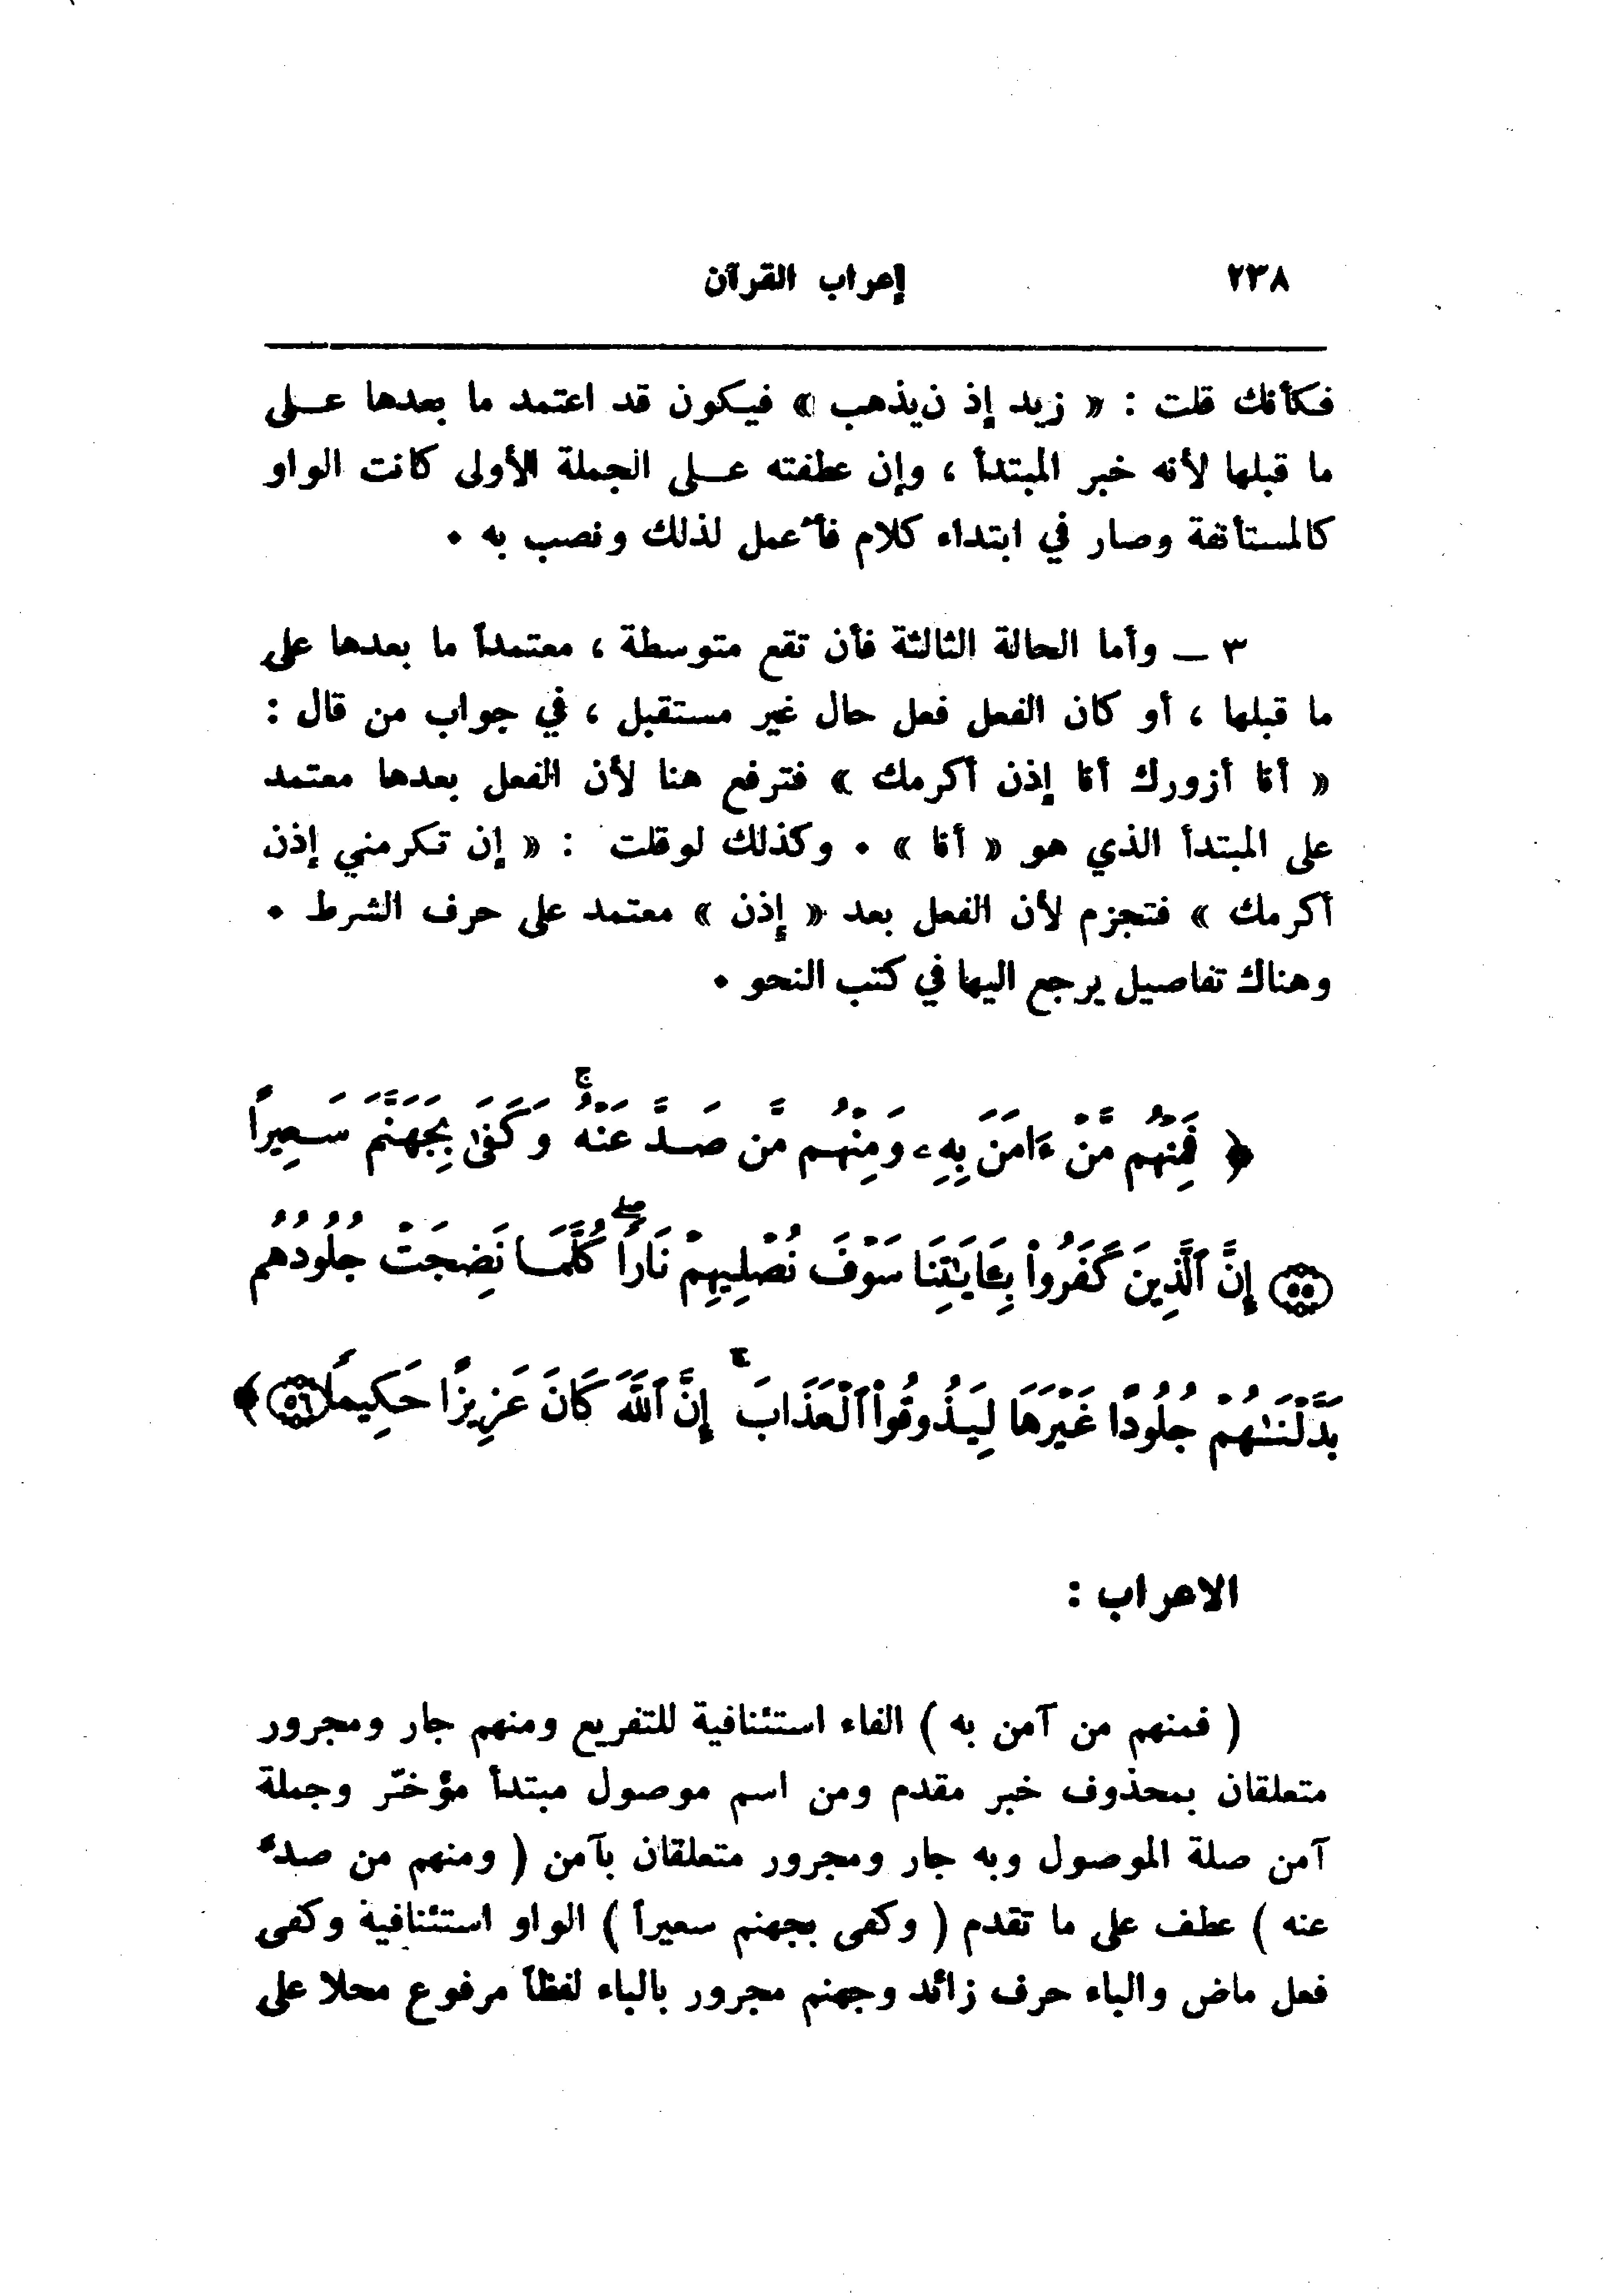 ٢٣٨ إعراب القرآن
فكأنك قلت : « زيد إذ نيذهب » فيكون قد اعتمد ما بعدها على
ما قبلها لأنه خبر المبتدأ ، وإن عطفته على الجملة الأولى كانت الواو
كالمستأنفة وصار في ابتداء كلام فأُعمل لذلك ونصب به .
٣ ـ وأما الحالة الثالثة فأن تقع متوسطة ، معتمداً ما بعدها على
ما قبلها ، أو كان الفعل فعل حال غير مستقبل ، في جواب من قال :
« أنا أزورك أنا إذن أكرمك » فترفع هنا لأن الفعل بعدها معتمد
على المبتدأ الذي هو « أنا » . وكذلك لوقلت : « إن تكرمني إذن
أكرمك » فتجزم لأن الفعل بعد « إذن » معتمد على حرف الشرط .
وهناك تفاصيل يرجع اليها في كتب النحو .
﴿ فَمِنْهُم مَّنْ ءَامَنَ بِهِۦ وَمِنْهُم مَّن صَدَّ عَنْهُ ۚ وَكَفَىٰ بِجَهَنَّمَ سَعِيرًا
﴿٥٥﴾ إِنَّ ٱلَّذِينَ كَفَرُوا۟ بِـَٔايَـٰتِنَا سَوْفَ نُصْلِيهِمْ نَارًا ۖ كُلَّمَا نَضِجَتْ جُلُودُهُم
بَدَّلْنَـٰهُمْ جُلُودًا غَيْرَهَا لِيَذُوقُوا۟ ٱلْعَذَابَ ۗ إِنَّ ٱللَّهَ كَانَ عَزِيزًا حَكِيمًا ﴿٥٦﴾ ﴾
الاعراب :
( فمنهم من آمن به ) الفاء استئنافية للتفريع ومنهم جار ومجرور
متعلقان بمحذوف خبر مقدم ومن اسم موصول مبتدأ مؤخّر وجملة
آمن صلة الموصول وبه جار ومجرور متعلقان بآمن ( ومنهم من صدّ
عنه ) عطف على ما تقدم ( وكفى بجهنم سعيراً ) الواو استئنافية وكفى
فعل ماض والباء حرف زائد وجهنم مجرور بالباء لفظاً مرفوع محلا على